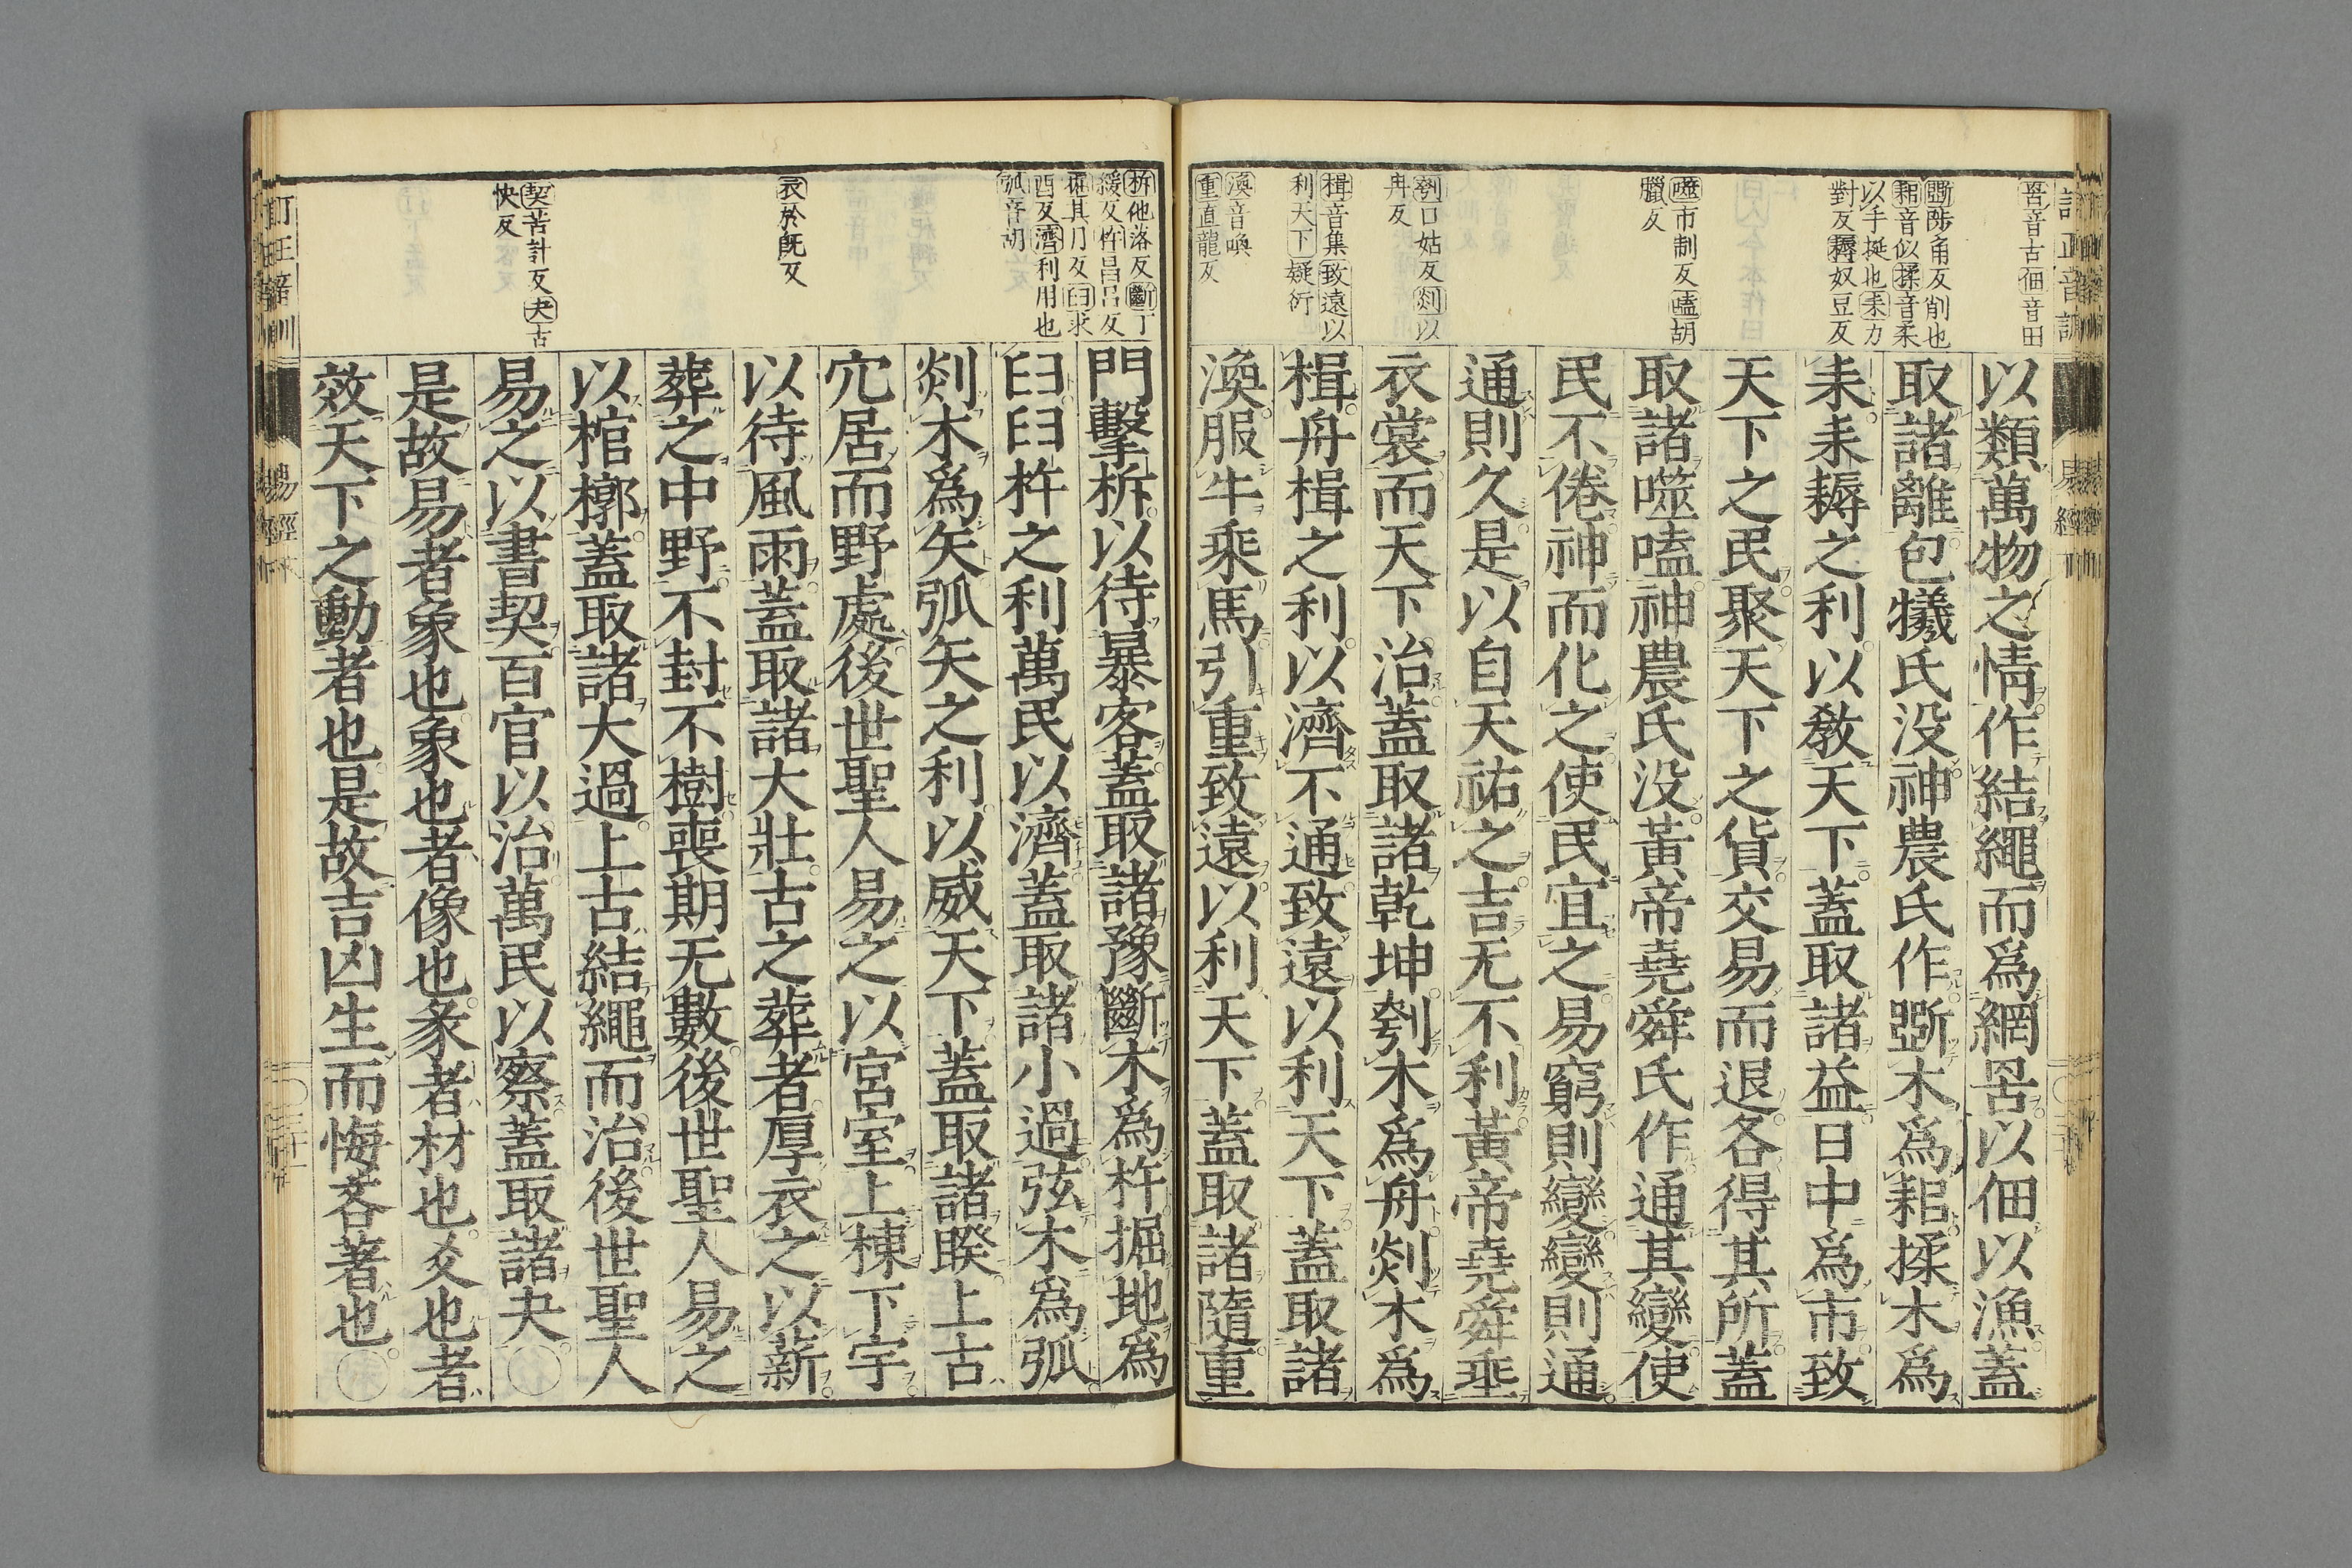 罟音古佃音田
斲陟角反削也
耜音似揉音柔
以手挻也耒力
對反耨奴豆反
噬市制反嗑胡
臘反
刳口姑反剡以
冉反
楫音集致遠以
利天下疑衍
渙音喚
重直龍反
以類萬物之情作結繩而爲網罟以佃以漁蓋
取諸離包犧氏没神農氏作斲木爲耜揉木爲
耒耒耨之利以敎天下蓋取諸益日中爲市致
天下之民聚天下之貨交易而退各得其所蓋
取諸噬嗑神農氏没黃帝堯舜氏作通其變使
民不倦神而化之使民宜之易窮則變變則通
通則久是以自天祐之吉无不利黃帝堯舜垂
衣裳而天下治蓋取諸乾坤刳木爲舟剡木爲
楫舟楫之利以濟不通致遠以利天下蓋取諸
渙服牛乘馬引重致遠以利天下蓋取諸隨重
柝他洛反斷丁
緩反杵昌呂反
掘其月反臼求
酉反濟利用也
弧音胡
衣於旣反
契苦計反夬古
快反
門擊柝以待暴客蓋取諸豫斷木爲杵掘地爲
臼臼杵之利萬民以濟蓋取諸小過弦木爲弧
剡木爲矢弧矢之利以威天下蓋取諸睽上古
穴居而野處後世聖人易之以宮室上棟下宇
以待風雨蓋取諸大壯古之葬者厚衣之以薪
葬之中野不封不樹喪期无數後世聖人易之
以棺槨蓋取諸大過上古結繩而治後世聖人
易之以書契百官以治萬民以察蓋取諸夬○
是故易者象也象也者像也彖者材也爻也者
效天下之動者也是故吉凶生而悔吝著也○